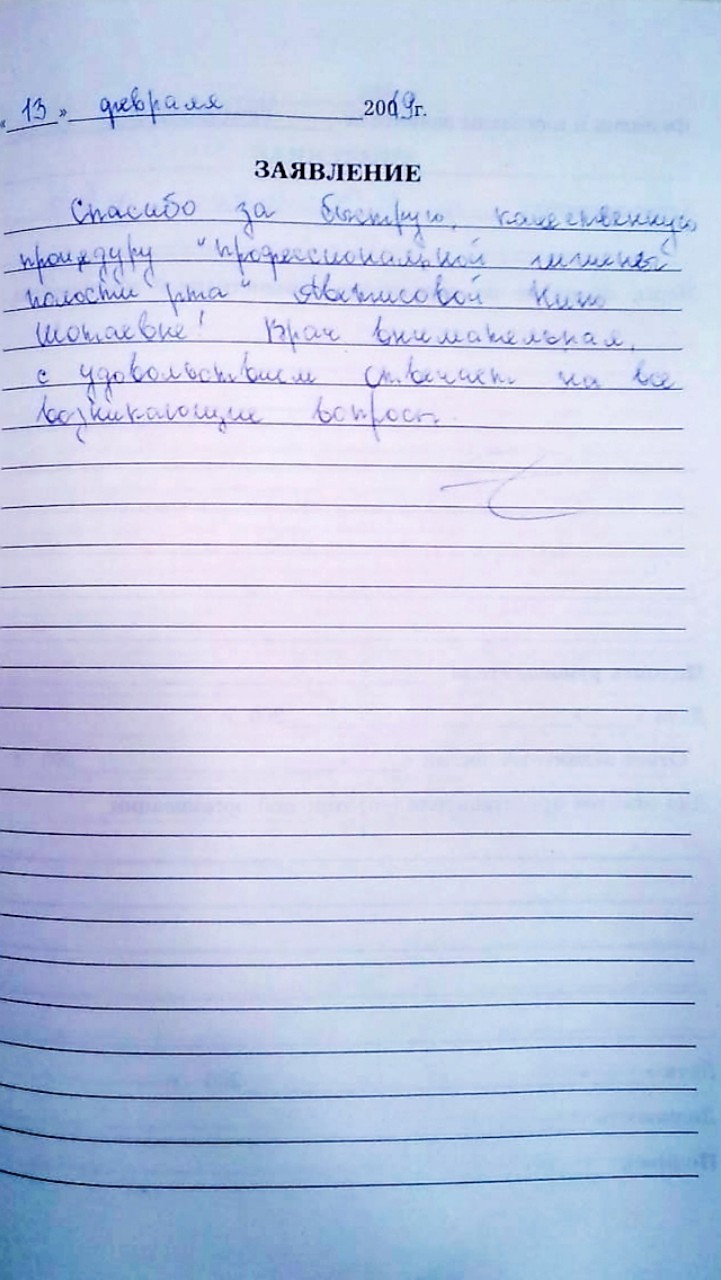 «13» февраля 2019г.
ЗАЯВЛЕНИЕ
Спасибо за быструю, качественную
процедуру "профессиональной гигиены
полости рта" Нино
Шотаевне! Врач внимательная,
с удовольствием отвечает на все
возникающие вопросы.